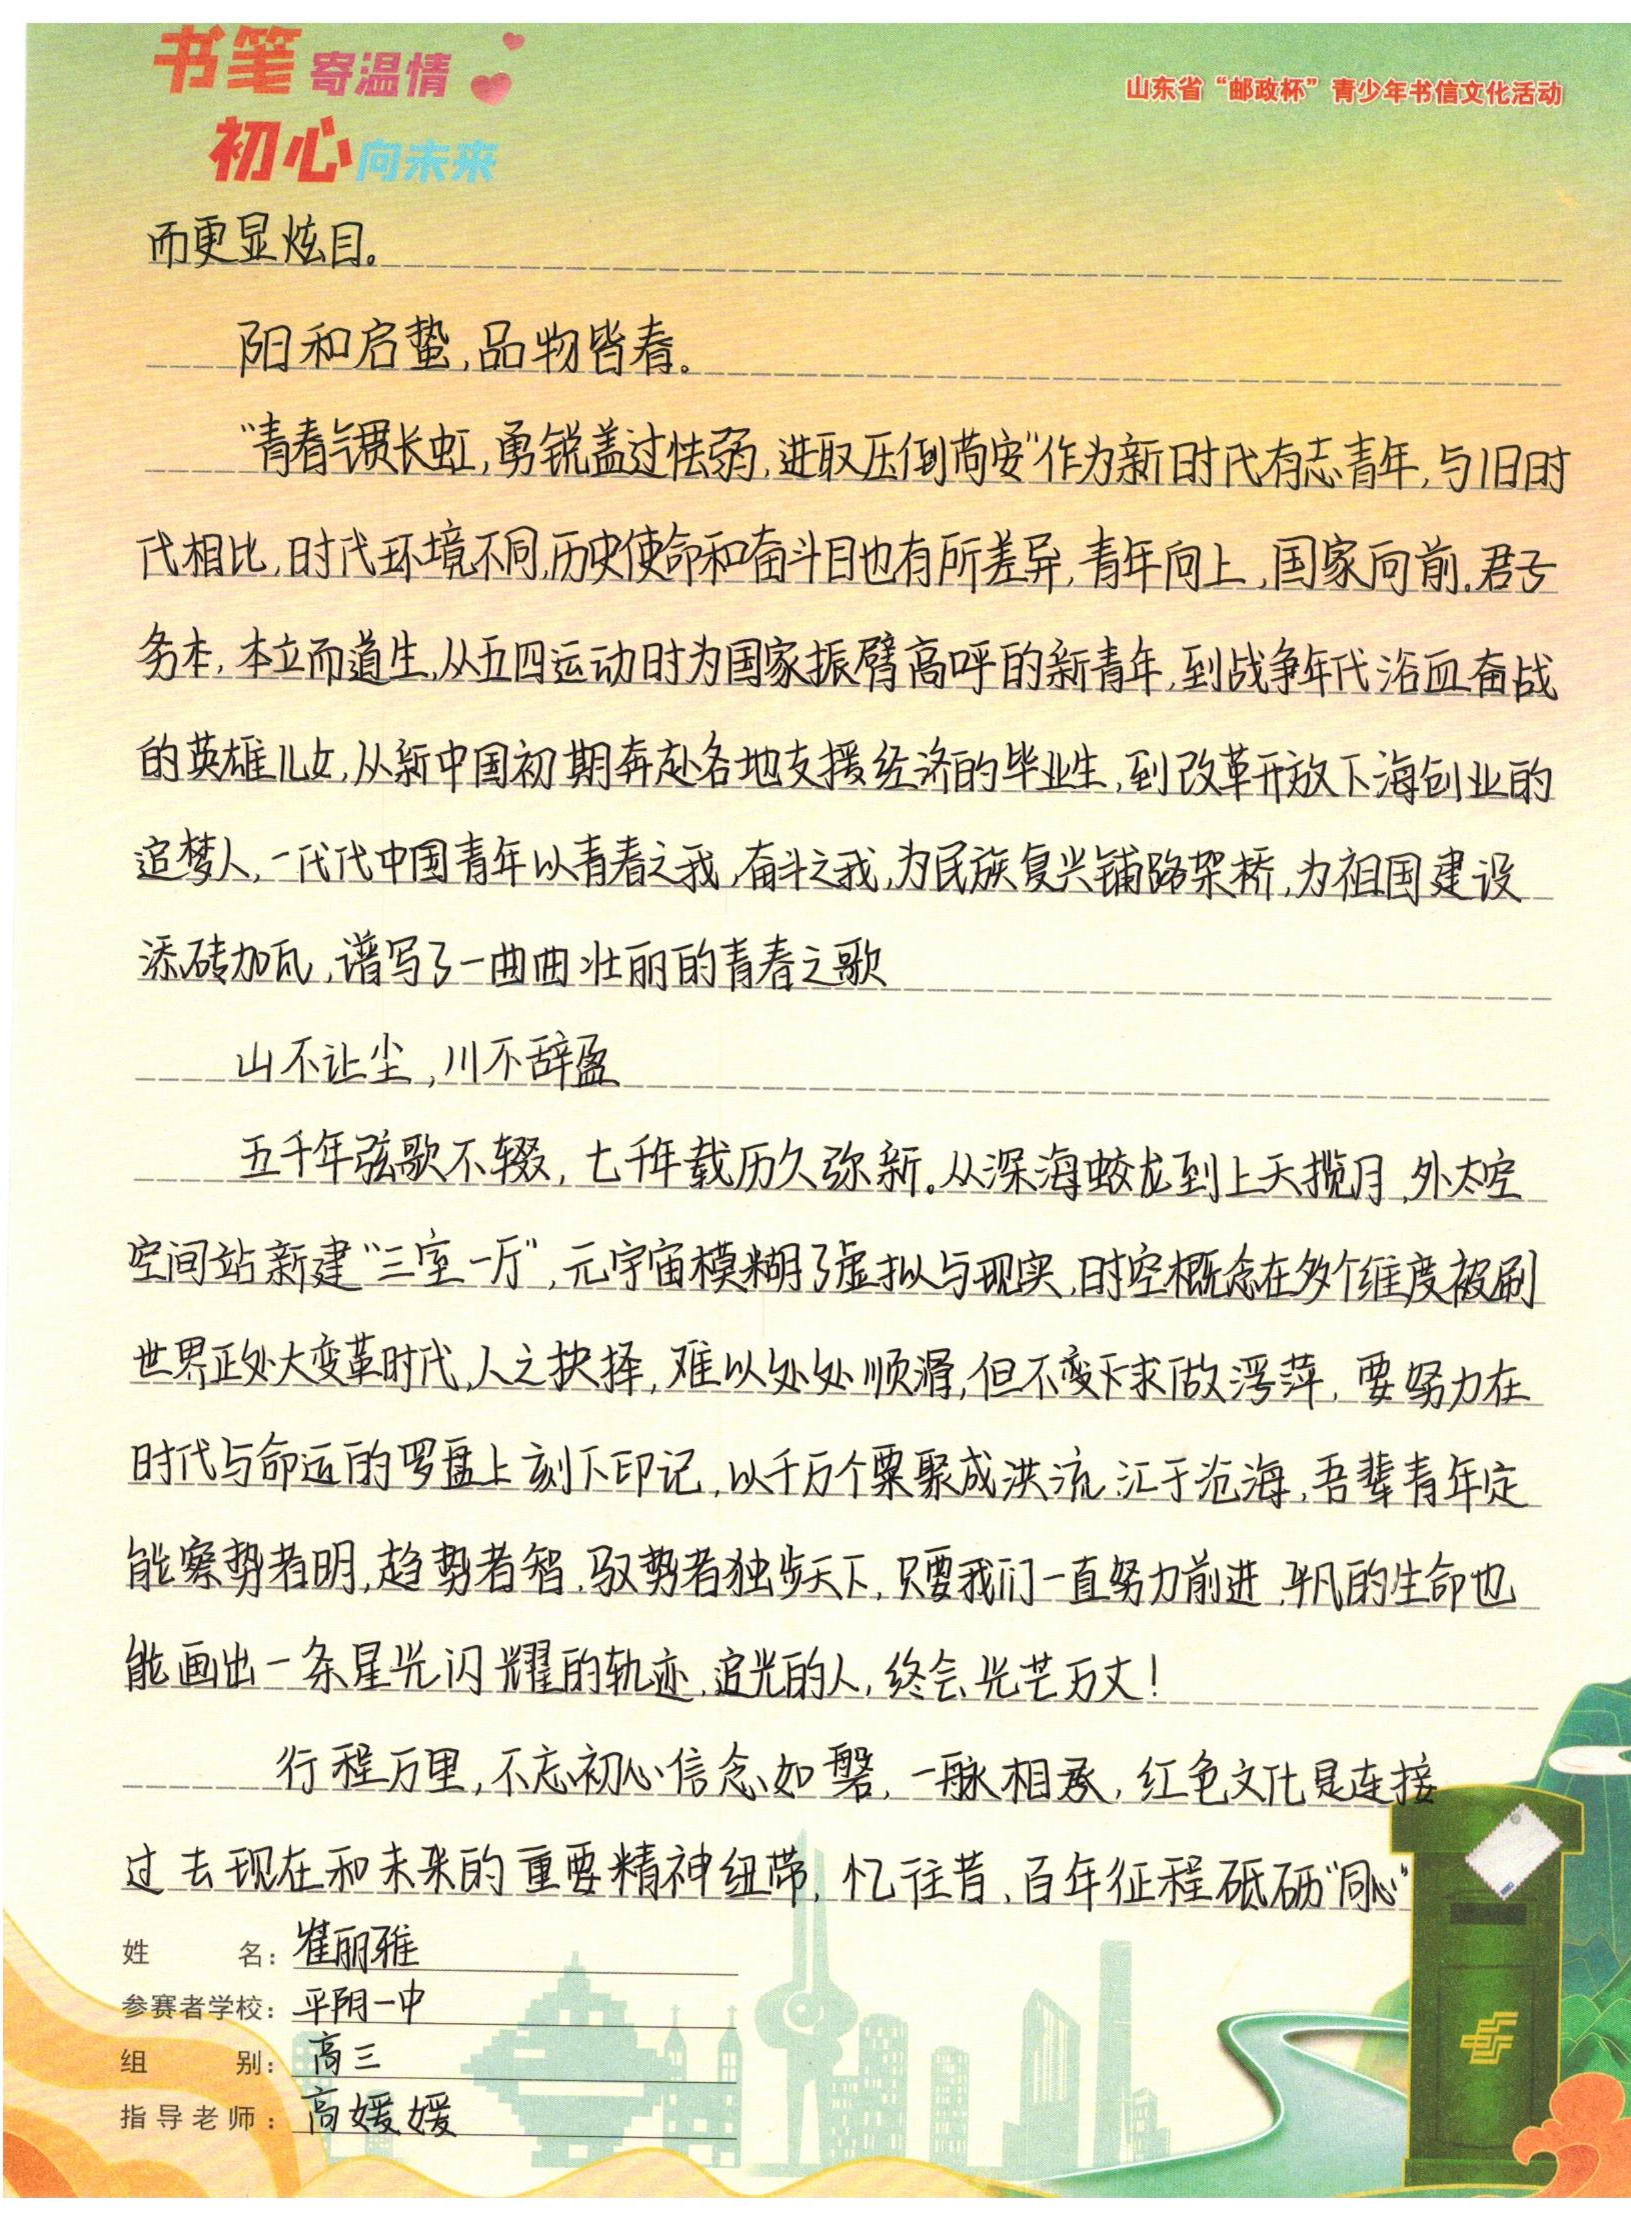 书笔寄温情
山东省“邮政杯”青少年书信文化活动
初心向未来
而更显炫目。
阳和启蛰,品物皆春。
“青春气贯长虹,勇锐盖过怯弱,进取压倒苟安”作为新时代有志青年,与旧时
代相比,时代环境不同,历史使命和奋斗目也有所差异,青年向上,国家向前.君子
务本,本立而道生,从五四运动时为国家振臂高呼的新青年,到战争年代浴血奋战
的英雄儿女,从新中国初期奔赴各地支援经济的毕业生,到改革开放下海创业的
追梦人,一代代中国青年以青春之我,奋斗之我,为民族复兴铺路架桥,为祖国建设
添砖加瓦,谱写了一曲曲壮丽的青春之歌
山不让尘,川不辞盈
五千年弦歌不辍,七千年载历久弥新。从深海蛟龙到上天揽月,外太空
空间站新建“三室一厅”,元宇宙模糊了虚拟与现实,时空概念在多个维度被刷
世界正处大变革时代,人之抉择,难以处处顺滑,但不变不求做浮萍,要努力在
时代与命运的罗盘上刻下印记,以千万个粟聚成洪流汇于沧海,吾辈青年定
能察势者明,趋势者智,驭势者独步天下,只要我们一直努力前进,平凡的生命也
能画出一条星光闪耀的轨迹,追光的人,终会光芒万丈!
行程万里,不忘初心信念如磐,一脉相承,红色文化是连接
过去现在和未来的重要精神纽带,忆往昔,百年征程砥砺“同心”
姓名:崔丽雅
参赛者学校:平阴一中
组别:高三
指导老师:高媛媛